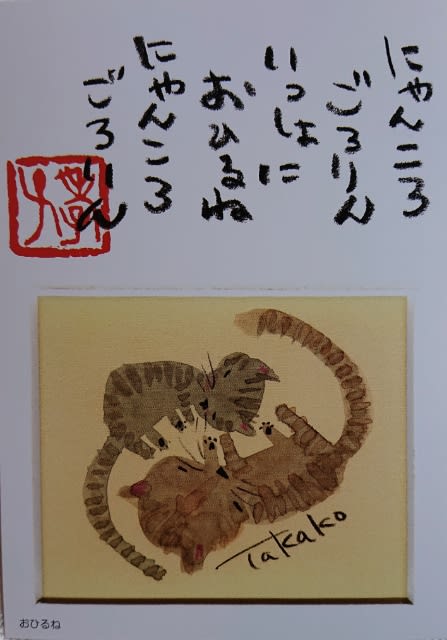 にゃんころ
ごろりん
いっしょに
おひるね
にゃんころ
ごろりん
Takako
おひるね